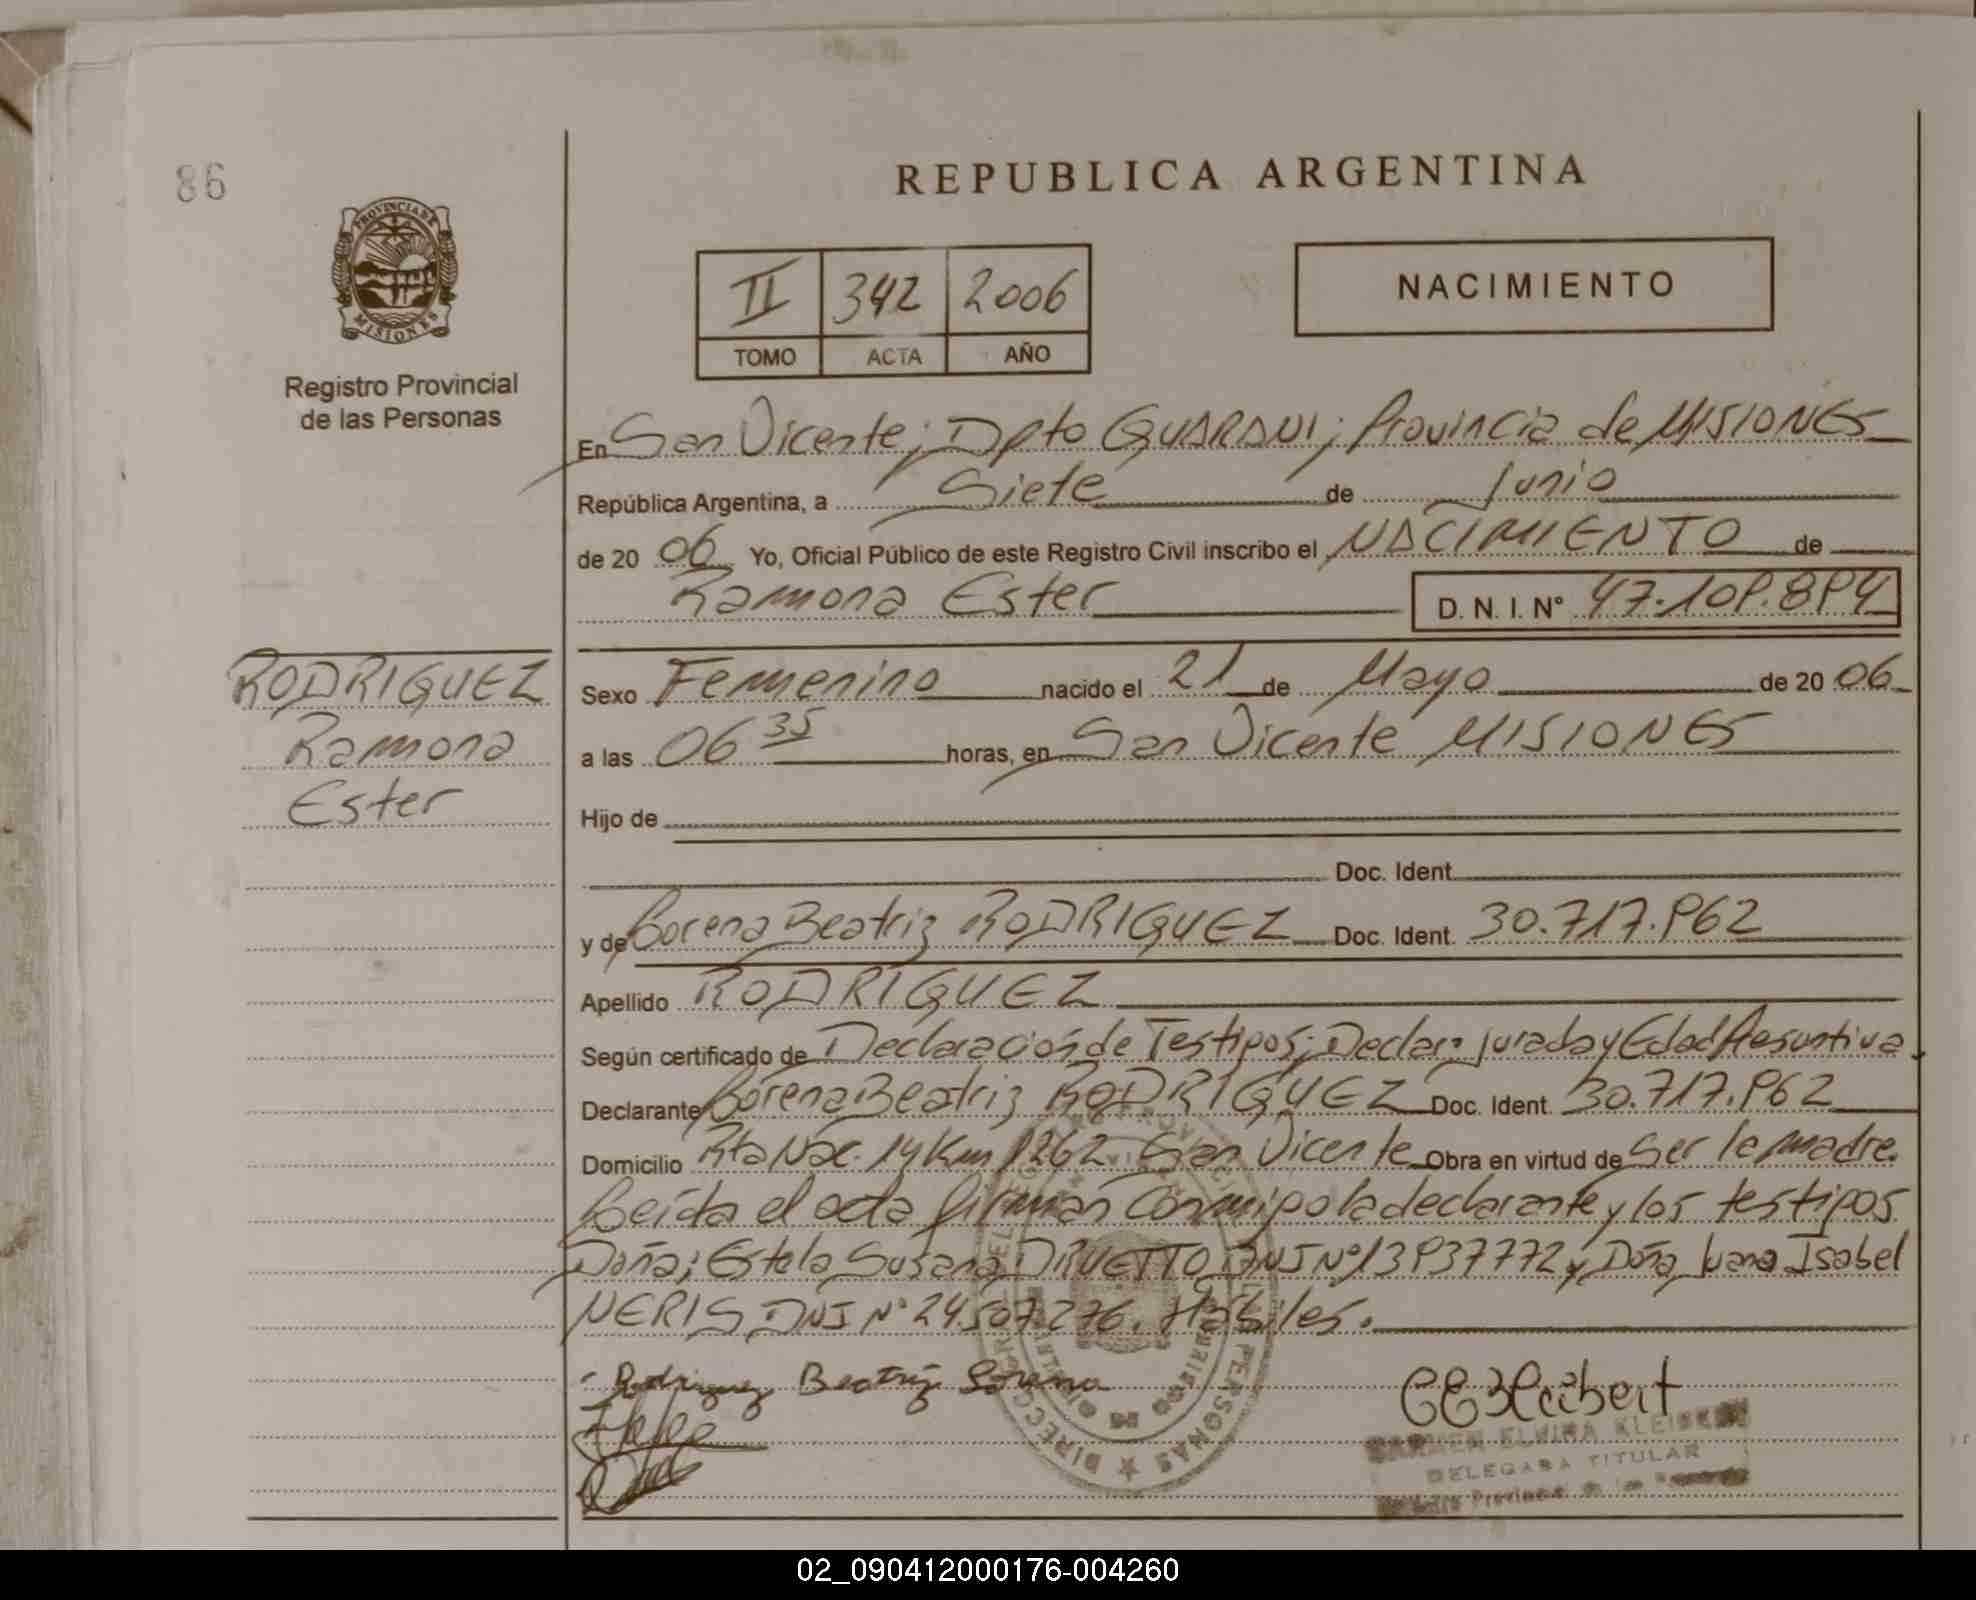 86
REPUBLICA ARGENTINA
PROVINCIA DE
MISIONES
Registro Provincial
de las Personas
II 342 2006
TOMO ACTA AÑO
NACIMIENTO
En San Vicente; Dpto GUARANI; Provincia de MISIONES
República Argentina, a Siete de Junio
de 20 06 Yo, Oficial Público de este Registro Civil inscribo el NACIMIENTO de
Ramona Ester D. N. I. Nº 47.109.894
RODRIGUEZ
Ramona
Ester
Sexo Femenino nacido el 21 de Mayo de 20 06
a las 06 35 horas, en San Vicente MISIONES
Hijo de
Doc. Ident.
y de Lorena Beatriz RODRIGUEZ Doc. Ident. 30.717.962
Apellido RODRIGUEZ
Según certificado de Declaración de Testigos; Declar. Jurada y Edad Presuntiva.
Declarante Lorena Beatriz RODRIGUEZ Doc. Ident. 30.717.962
Domicilio Rta Nac. 14 Km 1262 San Vicente Obra en virtud de Ser la madre.
Leída el acta firman conmigo la declarante y los testigos
Doña; Estela Susana DRUETTO DNI Nº 13937772 y Doña Juana Isabel
NERIS DNI Nº 24.507.276. Hábiles.
Rodriguez Beatriz Lorena
DELEGADA TITULAR
02_090412000176-004260